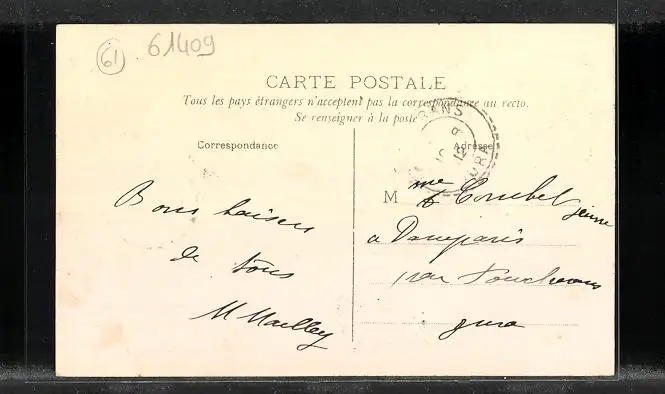 61 61409
CARTE POSTALE
Tous les pays étrangers n'acceptent pas la correspondance au recto.
Se renseigner à la poste
Correspondance
Adresse
Bons baisers
de tous
M Mailley
M me Combet jeune
a Damparis
par Foucherans
Jura
RANS
JURA